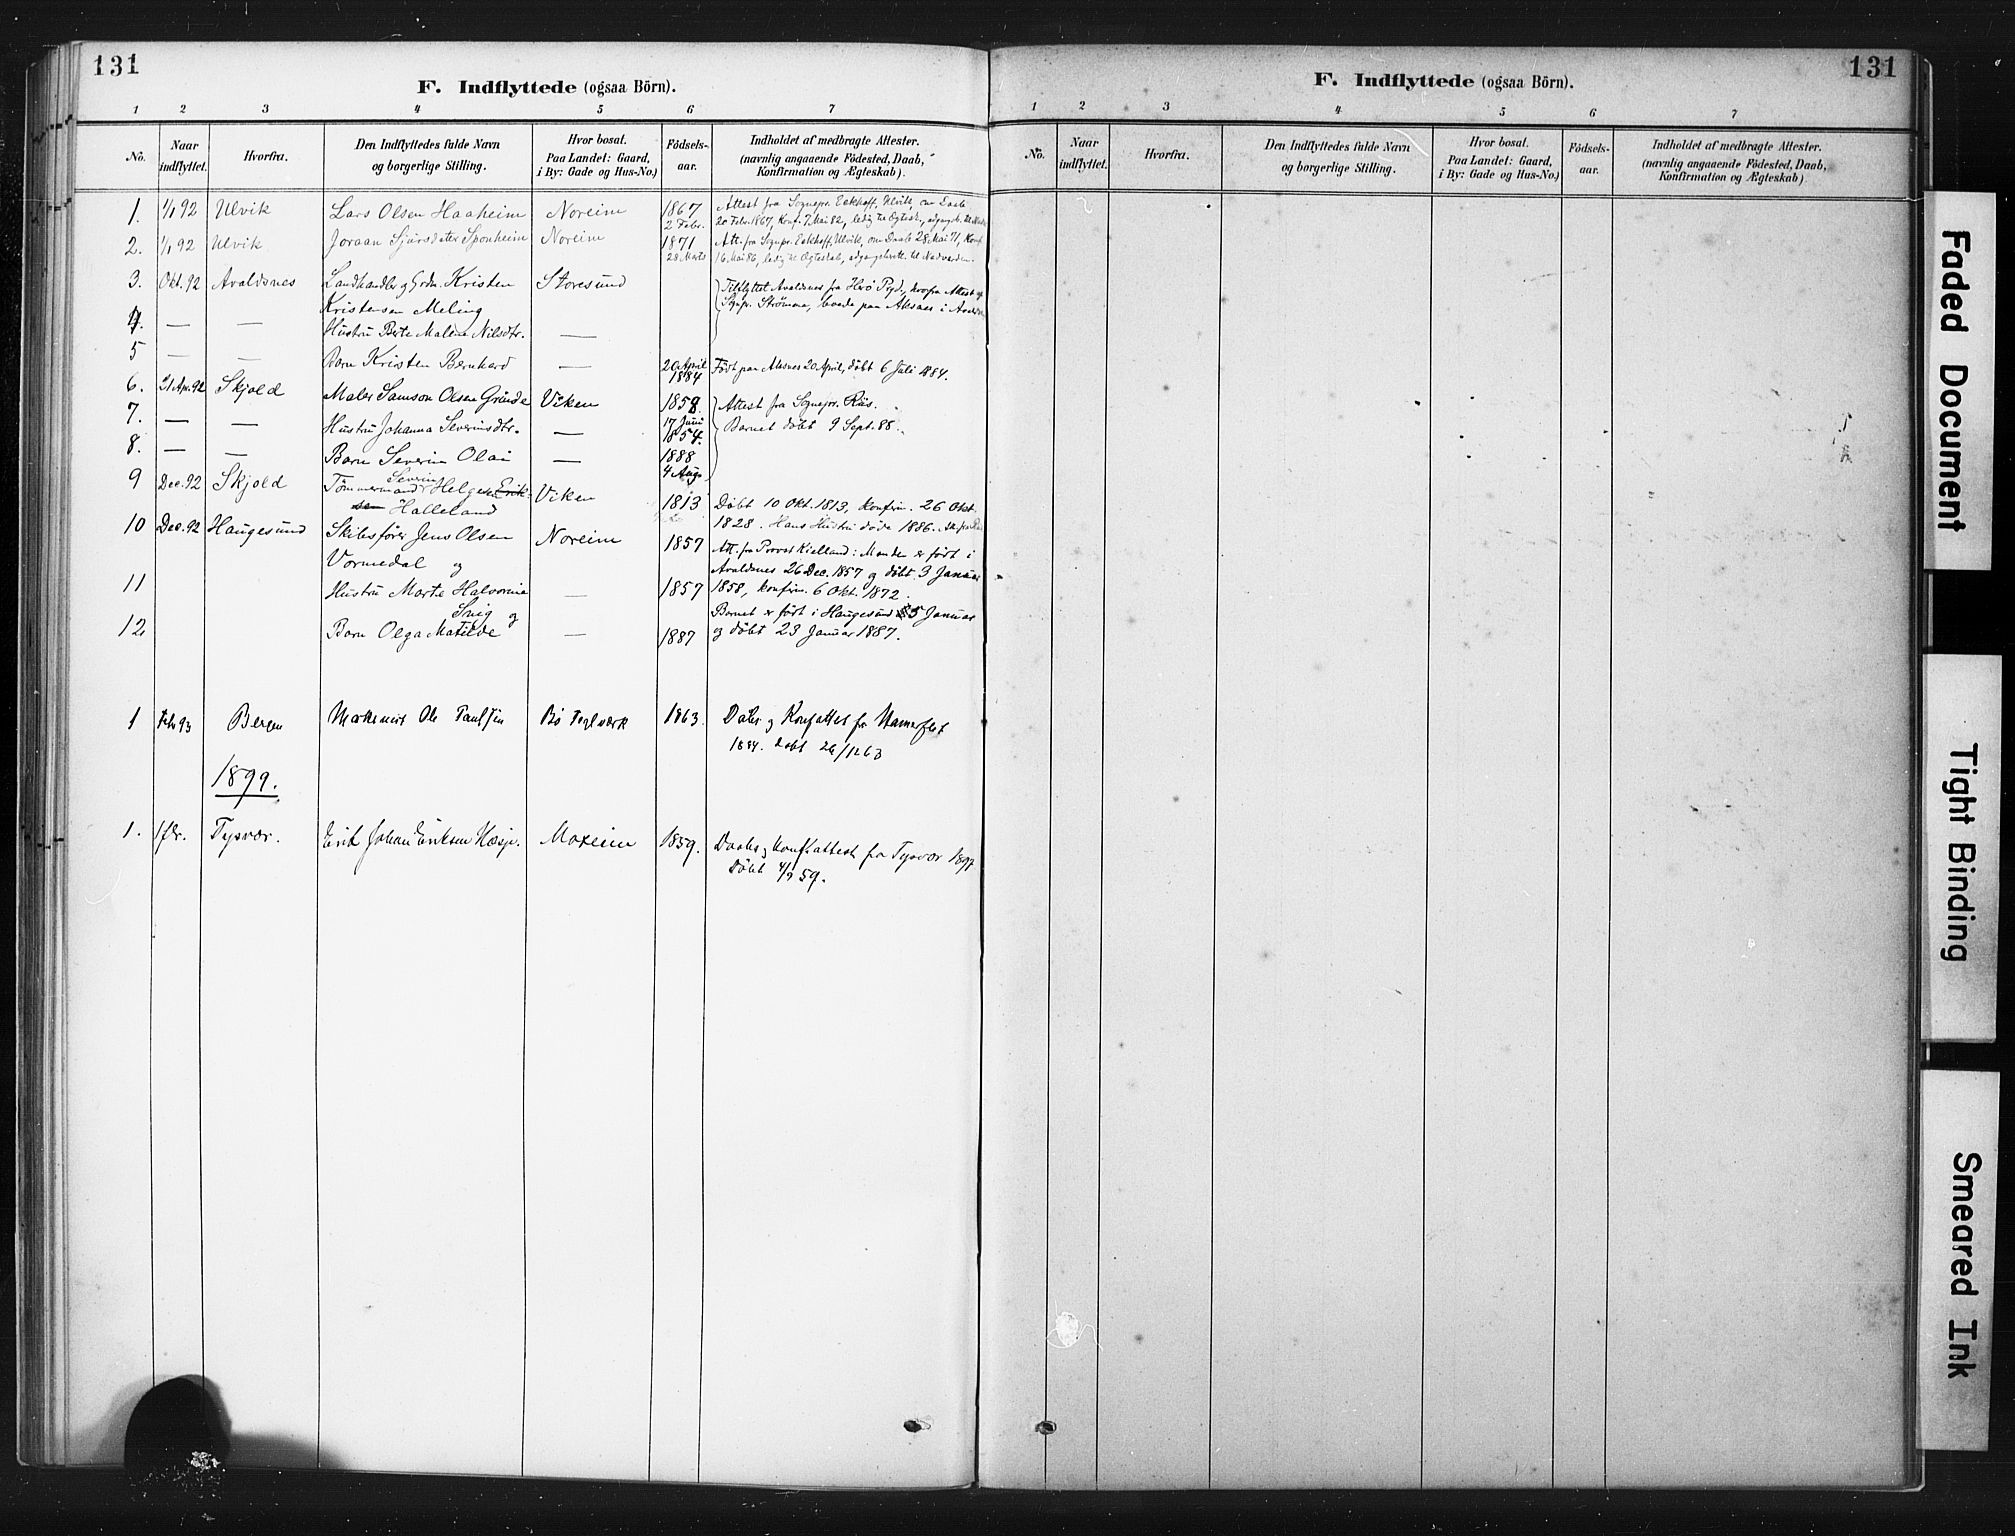 131
F. Indflyttede (ogsaa Börn).
1 2 3 4 5 6 7
No. Naar indflyttet. Hvorfra. Den Indflyttedes fulde Navn og borgerlige Stilling. Hvor bosat. Paa Landet: Gaard, i By: Gade og Hus-No.) Födsels-aar. Indholdet af medbragte Attester. (navnlig angaaende Födested, Daab, Konfirmation og Ægteskab).
1. 1/1 92 Ulvik Lars Olsen Haaheim Noreim 1867 2 Febr. Attest fra Sognepr. Eckhoff, Ulvik, om Daab
20 Febr. 1867, Konf. 7 Mai 82, ledig til Ægtesk.,
2. 1/1 92 Ulvik Joraan Sjursdater Sponheim Noreim 1871 28 Marts Att. fra Sognpr. Eckhoff, Ulvik, om Daab 28 Mai 71, Konf.
16 Mai 86, ledig til Ægteskab, til Nadverden.
3. Okt. 92 Avaldsnes Landhandler og Grdm. Kristen Storesund Tilflyttet Avaldsnes fra Herö Pgd., hvorfra Attest af
Kristensen Meling Sognpr. Strömme, boede paa Aksnes i
4. — — Hustru Berte Malene Nilsdtr. —
5 — — Barn Kristen Bernhard — 20 April 1884 Födt paa Aksnes 20 April, döbt 6 Juli 1884.
6. 21 Apr. 92 Skjold Maler Samson Olsen Grinde Viken 1858 Attest fra Sognepr. Riis.
7. — — Hustru Johanna Severinsdtr. — 17 Juni 1854. Barnet döbt 9 Sept. 88.
8. — — Barn Severin Olai — 1888 4 Aug.
9 Dec. 92 Skjold Tömmermand Severin Helgesen Viken 1813 Döbt 10 Okt. 1813, konfirm. 26 Okt.
Halleland 1828. Hans Hustru döde 1886.
10 Dec. 92 Haugesund Skibsförer Jens Olsen Noreim 1857 Att. fra Provst Kielland: Manden er födt i
Vormedal og Avaldsnes 26 Dec. 1857 og döbt 3 Januar
11 Hustru Marte Halvorine — 1857 1858, konfirm. 6 Okt. 1872.
Snig og Barnet er födt i Haugesund 5 Januar
12 Barn Olga Matilde — 1887 og döbt 23 Januar 1887.
1 Feb 93 Bergen Ole Paulsen Bö Teglværk 1863. Daabs og Konfattest fra Hamerfest
1884. Döbt 26/12 63
1899.
1. Tysvær. Erik Johan Eriksen 1859. Daabs og Konf. attest fra Tysvær 1897
Döbt 4/9 59.
131
F. Indflyttede (ogsaa Börn).
1 2 3 4 5 6 7
No. Naar indflyttet. Hvorfra. Den Indflyttedes fulde Navn og borgerlige Stilling. Hvor bosat. Paa Landet: Gaard, i By: Gade og Hus-No.) Födsels-aar. Indholdet af medbragte Attester. (navnlig angaaende Födested, Daab, Konfirmation og Ægteskab)
Faded Document
Tight Binding
Smeared Ink